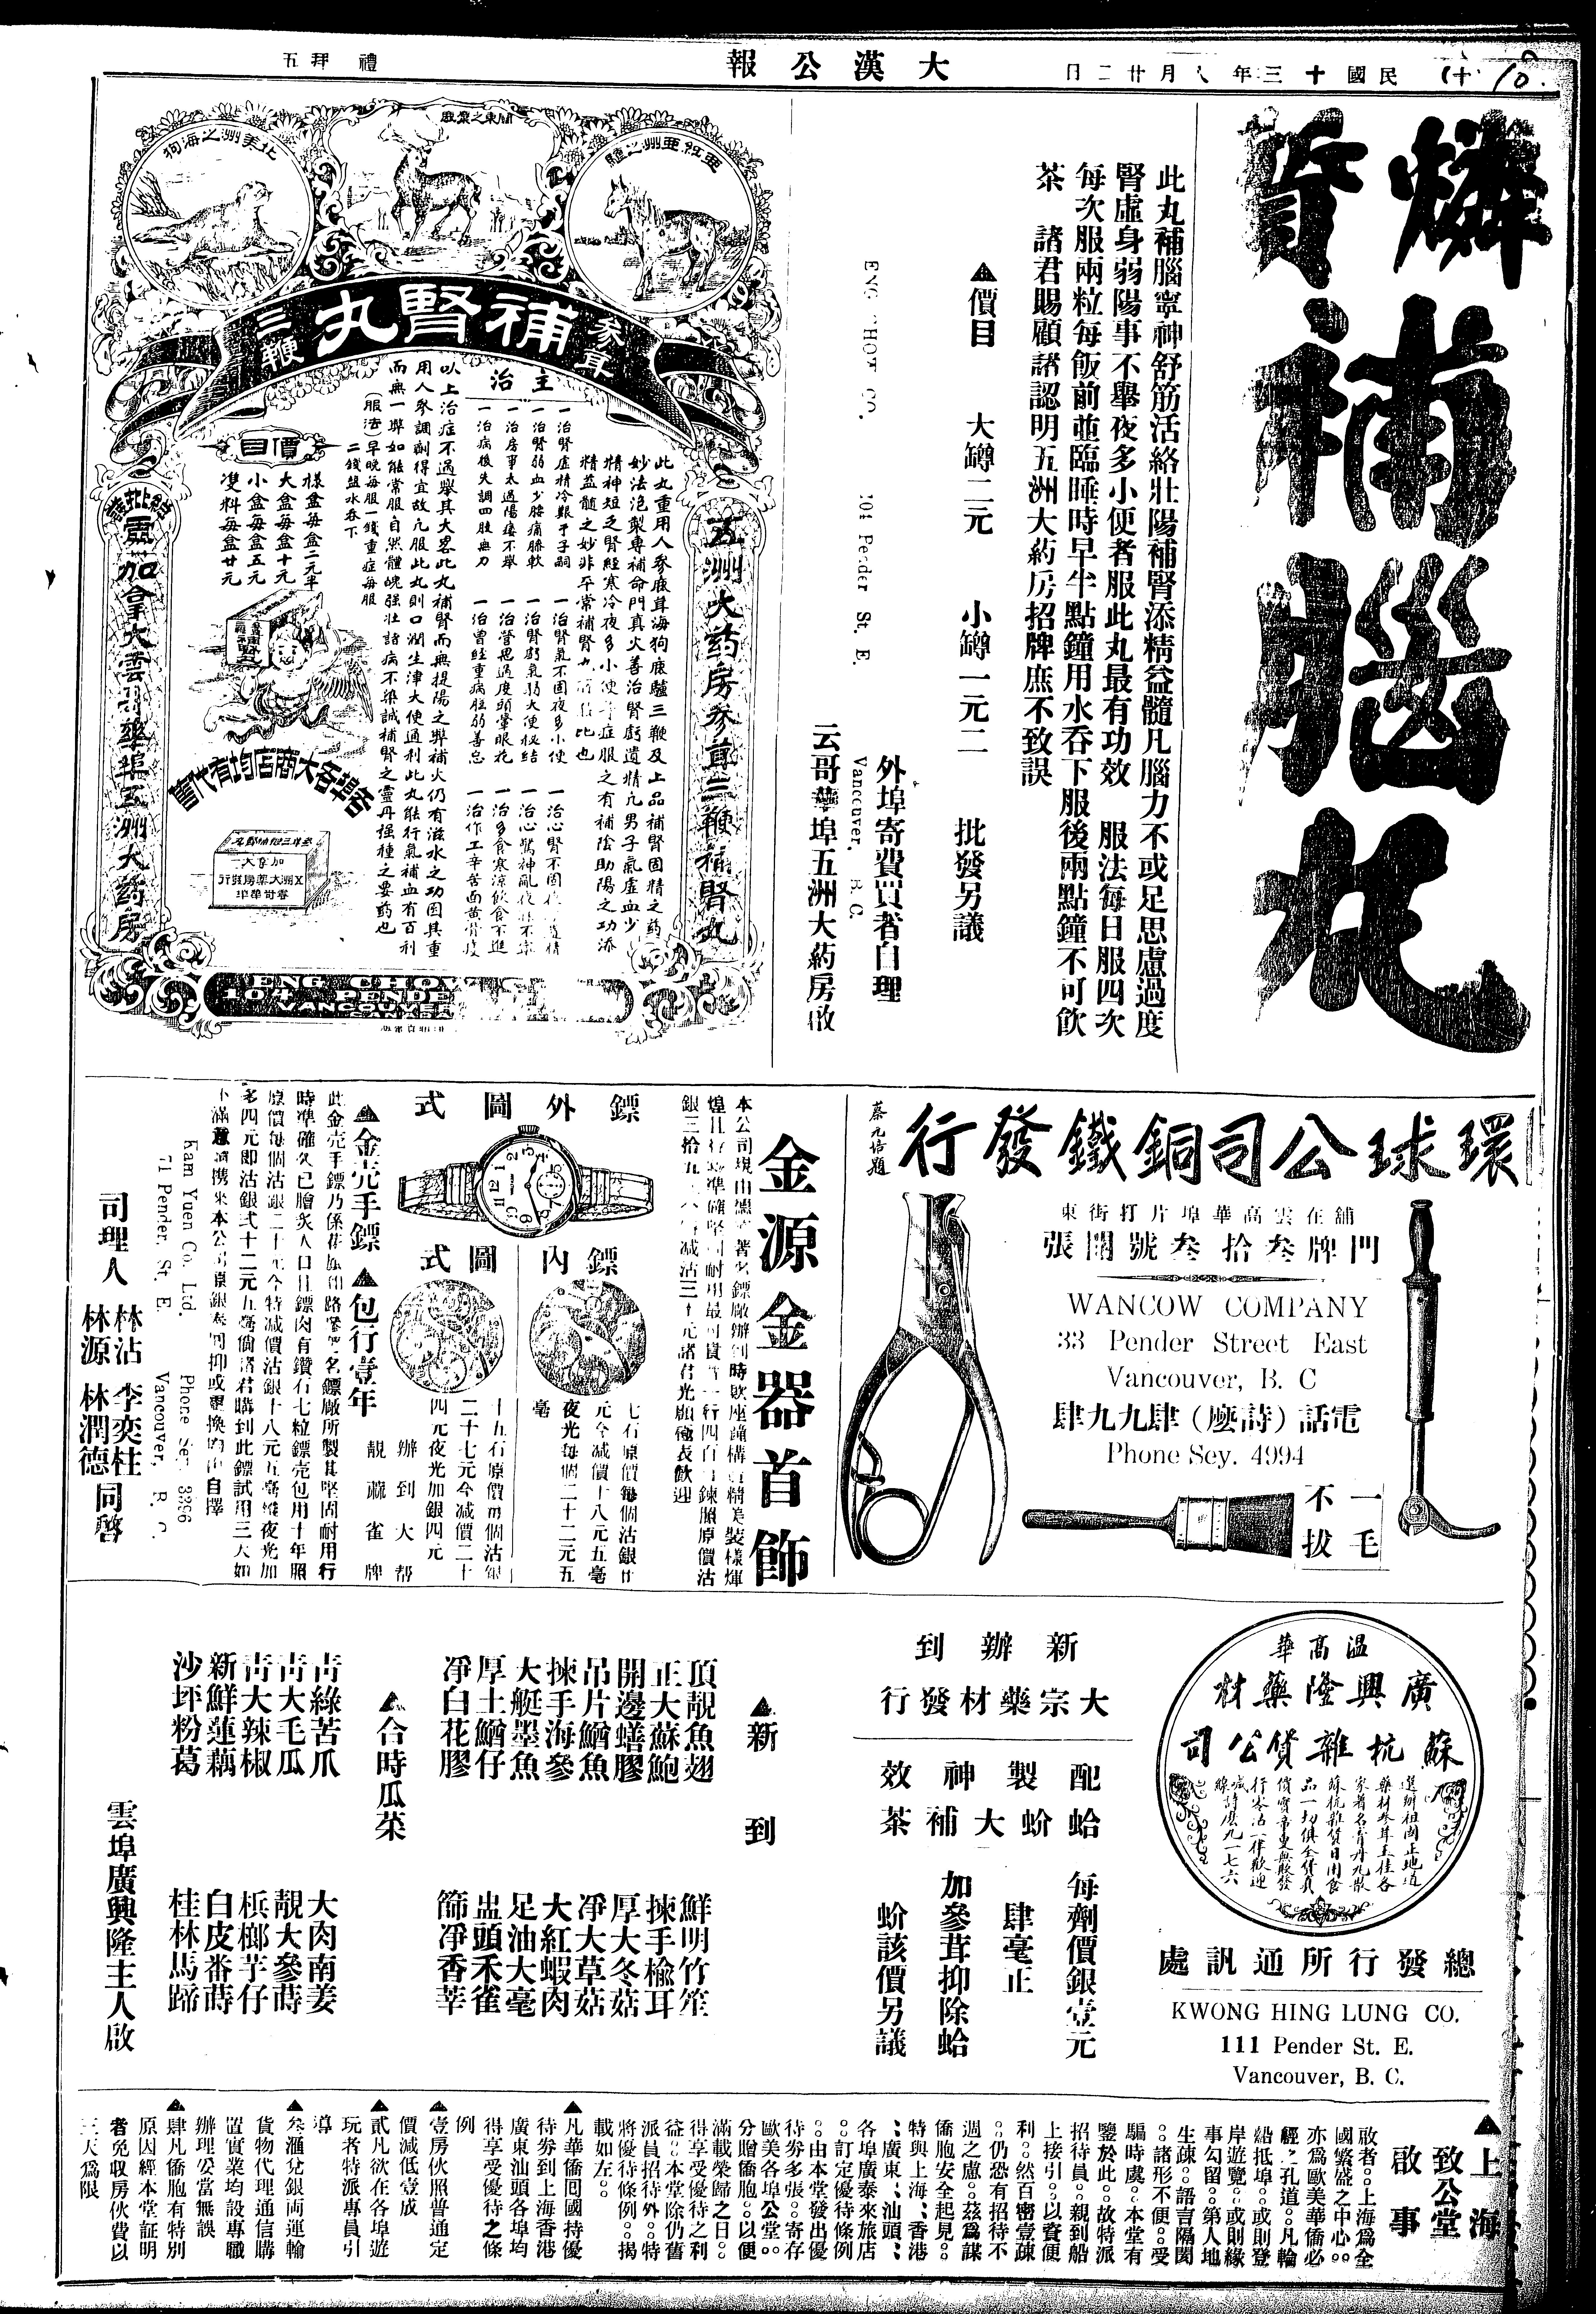 (十)
民國十三年八月廿二日
大漢公報
禮拜五
燐質補腦丸
此丸補腦寧神舒筋活絡壯陽補腎添精益髓凡腦力不或足思慮過度
腎虛身弱陽事不舉夜多小便者服此丸最有功效　服法每日服四次
每次服兩粒每飯前並臨睡時早半點鐘用水吞下服後兩點鐘不可飲
茶　諸君賜顧諸認明五洲大葯房招牌庶不致誤
▲價目　大罇二元　小罇一元二　批發另議
外埠寄費買者自理
104 Pender St. E.
Vancouver, B. C.
云哥華埠五洲大葯房啟
亞洲之驢
關東之鹿
北美洲之海狗
參茸
補腎丸
三鞭
主治
五洲大药房參茸三鞭補腎丸
此丸重用人參鹿茸海狗鹿驢三鞭及上品補腎固精之药
一治腎虛精冷艱于子嗣
一治腎弱血少腰痛膝軟
一治房事太過陽痿不舉
一治病後失調四肢無力
一治腎氣不固夜多小便
一治腎虧氣弱大便秘結
一治營思過度頭暈眼花
一治曾經重病體弱善忘
一治多食寒涼飲食不進
以上治症不過舉其大畧此丸補腎而無提陽之弊補火仍有滋水之功固其重
用人參調劑得宜故凡服此丸則口潤生津大便通利此丸能行氣補血有百利
而無一弊如能常服自然體魄强壯諸病不染誠補腎之靈丹種之要葯也
(服法)早晚每服一錢重症每服
二錢鹽水吞下
價目
樣盒每盒二元半
大盒每盒十元
小盒每盒五元
雙料每盒廿元
各埠各大商店均有代售
加拿大雲哥華埠五洲大药房
104 PENDER
VANCOUVER
環球公司銅鐵發行
蔡元培題
舖在雲高華埠片打街東
門牌叁拾叁號開張
WANCOW COMPANY
33 Pender Street East
Vancouver, B. C
電話(詩麼)肆九九肆
Phone Sey. 4994
一毛
不拔
金源金器首飾
銀三拾五元今減沽三十元諸君光顧極表歡迎
鏢外圖式
鏢內圖式
七石原價每個沽銀廿
元今減價十八元五毫
夜光每個二十二元五
毫
十五石原價每個沽銀
二十七元今減價二十
四元夜光加銀四元
辦到大帮
靚蔴雀牌
▲金壳手鏢　▲包行壹年
時準確久已膾炙人口且鏢內有鑽石七粒鏢壳包用十年照
原價每個沽銀二十元今特減價沽銀十八元五毫縱夜光加
多四元即沽銀弍十二元五毫倘諸君購到此鏢試用三天如
Kam Yuen Co. Ltd.
Phone Sey. 3266
71 Pender. St. E
Vancouver, B. C.
司理人
林沾
林源
李奕柱
林潤德
同啓
溫高華
廣興隆藥材
蘇杭雜貨公司
選辦祖國正地道
藥材參茸玉桂各
家著名膏丹丸散
蘇杭雜貨日用食
品一切俱全貨真
價實帝更無欺發
行零沽一律歡迎
喊線詩麼九一七六
總發行所通訊處
KWONG HING LUNG CO.
111 Pender St. E.
Vancouver, B. C.
新辦到
大宗藥材發行
配製神效
蛤蚧大補茶
每劑價銀壹元
肆毫正
加參茸抑除蛤
蚧該價另議
▲新到
頂靚魚翅
正大蘇鮑
開邊鱔膠
吊片鰌魚
揀手海參
大艇墨魚
厚土鰌仔
凈白花膠
鮮明竹笙
揀手榆耳
厚大冬菇
凈大草菇
大紅蝦肉
足油大毫
盅頭禾雀
篩凈香莘
▲合時瓜菜
靑綠苦瓜
靑大毛瓜
靑大辣椒
新鮮蓮藕
沙坪粉葛
大肉南姜
靚大參蒔
檳榔芋仔
白皮畨蒔
桂林馬蹄
雲埠廣興隆主人啟
▲上海
致公堂
啟事
敢者。。上海爲全
國繁盛之中心。。
亦爲歐美華僑必
經之孔道。。凡輪
船抵埠。。或則登
岸遊覽。。或則緣
事勾留。。第人地
生疎。。語言隔閡
。。諸形不便。。受
騙時虞。。本堂有
鑒於此。。故特派
招待員。。親到船
上接引。。以資便
利。。然百密壹疎
。。仍恐有招待不
週之慮。。茲爲謀
僑胞安全起見。。
特與上海、香港
、廣東、汕頭、
各埠廣泰來旅店
。。訂定優待條例
。。由本堂發出優
待劵多張。。寄存
歐美各埠公堂。。
分贈僑胞。。以便
滿載榮歸之日。。
得享受優待之利
益。。本堂除仍舊
派員招待外。。特
將優待條例。。揭
載如左。。
▲凡華僑囘國持優
待劵到上海香港
廣東汕頭各埠均
得享受優待之條
例
▲壹房伙照普通定
價減低壹成
▲貳凡欲在各埠遊
玩者特派專員引
導
▲叁滙兌銀両運輸
貨物代理通信購
置實業均設專職
辦理妥當無誤
▲肆凡僑胞有特別
原因經本堂証明
者免収房伙費以
三天爲限